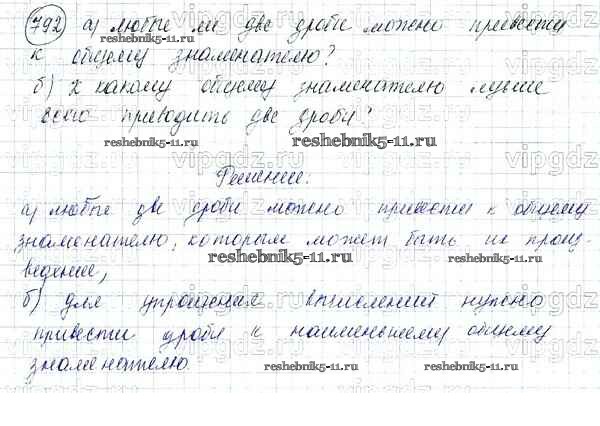 792 а) любые ли две дроби можно привести
к общему знаменателю?
б) К какому общему знаменателю лучше
всего приводить две дроби?
Решение:
а) любые две дроби можно привести к общему
знаменателю, которым может быть их произ-
ведение,
б) для упрощения вычислений нужно
привести дроби к наименьшему общему
знаменателю.
reshebnik5-11.ru
reshebnik5-11.ru
reshebnik5-11.ru
reshebnik5-11.ru
reshebnik5-11.ru
reshebnik5-11.ru
reshebnik5-11.ru
vipgdz.ru